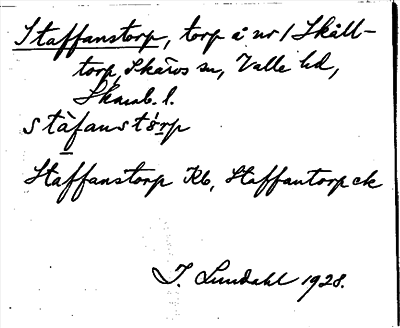 Staffanstorp, torp å nr 1 Skåll-
torp, Skärvs sn, Valle hd,
Skarab. l.
stàfanstórp
Staffanstorp Kb, Staffantorp ek
I. Lundahl 1928.